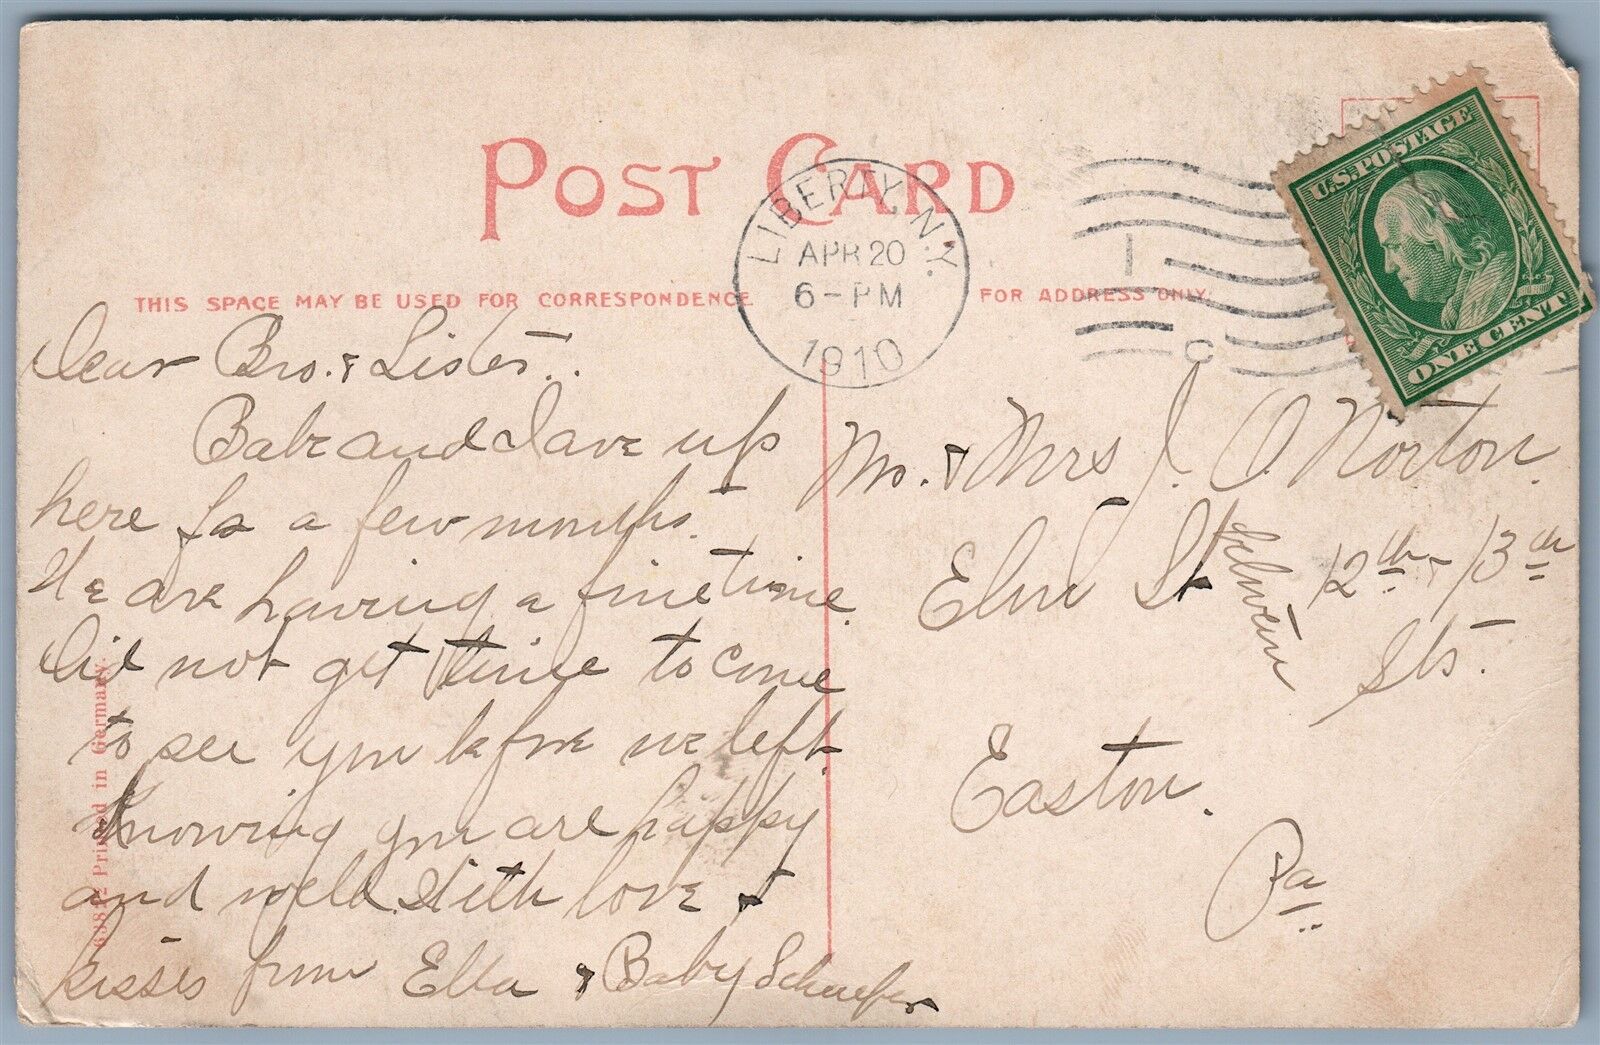 POST CARD
LIBERTY, N.Y.
APR 20
6-PM
1910
U.S. POSTAGE
ONE CENT
THIS SPACE MAY BE USED FOR CORRESPONDENCE
FOR ADDRESS ONLY.
Dear Bro. & Sister.
Babe and I are up
here for a few months.
We are having a fine time.
Did not get time to come
to see you before we left.
Knowing you are happy
and well. With love &
kisses from Ella & Baby
Mr. & Mrs J. O. Norton.
Elm St between 12th & 13th
Sts.
Easton.
Pa
Printed in Germany.